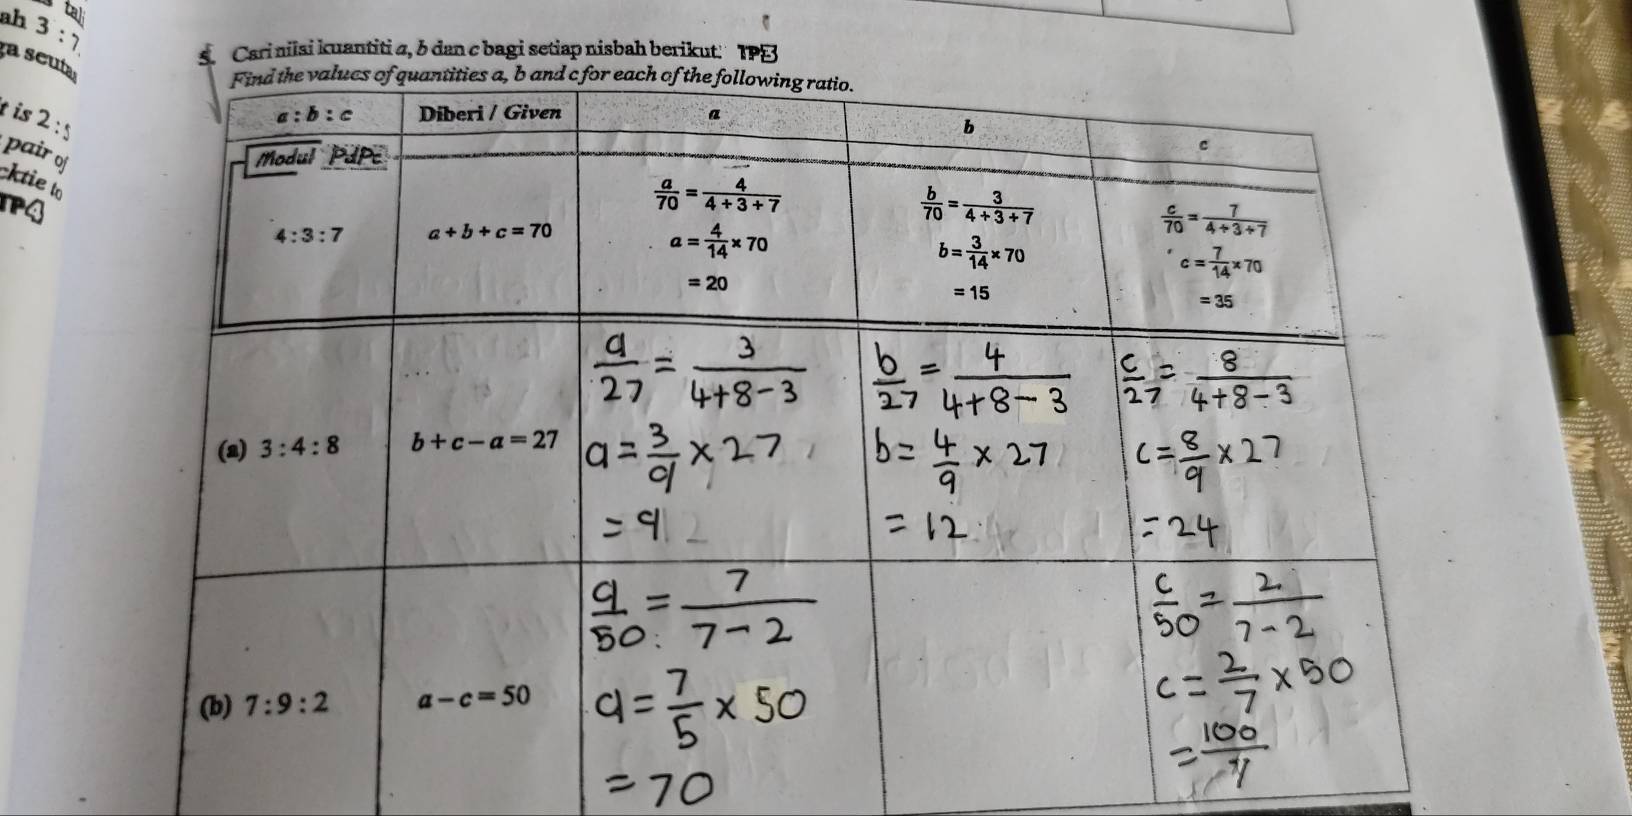 tali
ah 3 : 7.
ga seutas
t is 2 : 5
pair of
cktie to
TP4
5. Cari nilai kuantiti a, b dan c bagi setiap nisbah berikut. TP3
Find the values of quantities a, b and c for each of the following ratio.
a : b : c Diberi / Given a b c
Modul PdPc
4 : 3 : 7 a + b + c = 70
a/70 = 4/(4 + 3 + 7)
a = 4/14 × 70
= 20
b/70 = 3/(4 + 3 + 7)
b = 3/14 × 70
= 15
c/70 = 7/(4 + 3 + 7)
c = 7/14 × 70
= 35
(a) 3 : 4 : 8 b + c − a = 27
a/27 = 3/(4+8−3)
a = 3/9 × 27
= 9
b/27 = 4/(4+8−3)
b = 4/9 × 27
= 12
c/27 = 8/(4+8−3)
c = 8/9 × 27
= 24
(b) 7 : 9 : 2 a − c = 50
a/50 = 7/(7−2)
a = 7/5 × 50
= 70
c/50 = 2/(7−2)
c = 2/7 × 50
= 100/7